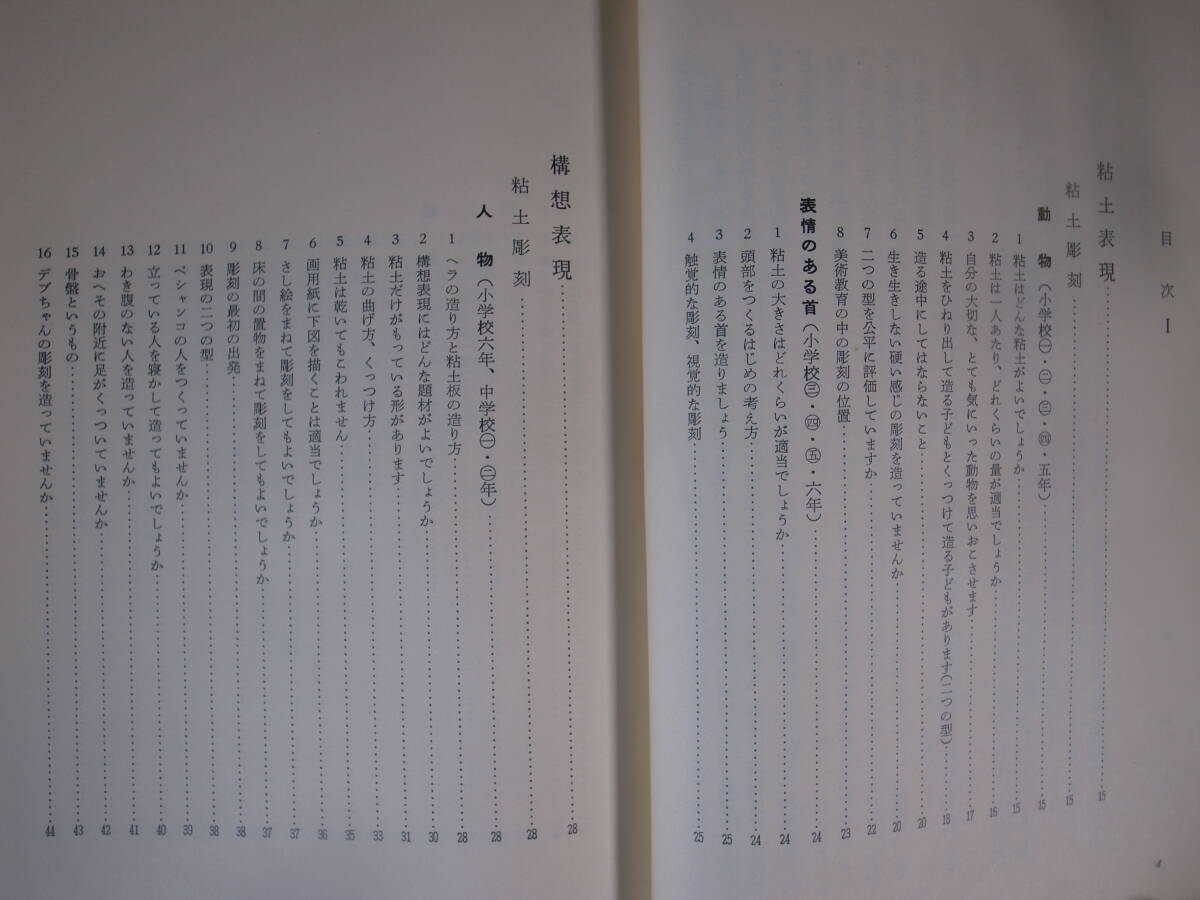 目次 Ⅰ
粘土表現……15
粘土彫刻……15
動物(小学校㊀・㊁・㊂・㊃・五年)……15
1 粘土はどんな粘土がよいでしょうか……15
2 粘土は一人あたり、どれくらいの量が適当でしょうか……16
3 自分の大切な、とても気にいった動物を思いおこさせます……17
4 粘土をひねり出して造る子どもとくっつけて造る子どもがあります(二つの型)……18
5 造る途中にしてはならないこと……20
6 生き生きしない硬い感じの彫刻を造っていませんか……20
7 二つの型を公平に評価していますか……22
8 美術教育の中の彫刻の位置……23
表情のある首(小学校㊂・㊃・㊄・六年)……24
1 粘土の大きさはどれくらいが適当でしょうか……24
2 頭部をつくるはじめの考え方……24
3 表情のある首を造りましょう……25
4 触覚的な彫刻、視覚的な彫刻……25
4
構想表現……28
粘土彫刻……28
人物(小学校六年、中学校㊀・㊁年)……28
1 ヘラの造り方と粘土板の造り方……28
2 構想表現にはどんな題材がよいでしょうか……30
3 粘土だけがもっている形があります……31
4 粘土の曲げ方、くっつけ方……33
5 粘土は乾いてもこわれません……35
6 画用紙に下図を描くことは適当でしょうか……36
7 さし絵をまねて彫刻をしてもよいでしょうか……37
8 床の間の置物をまねて彫刻をしてもよいでしょうか……37
9 彫刻の最初の出発……38
10 表現の二つの型……38
11 ペシャンコの人をつくっていませんか……39
12 立っている人を寝かして造ってもよいでしょうか……40
13 わき腹のない人を造っていませんか……41
14 おへその附近に足がくっついていませんか……42
15 骨盤というもの……43
16 デブちゃんの彫刻を造っていませんか……44